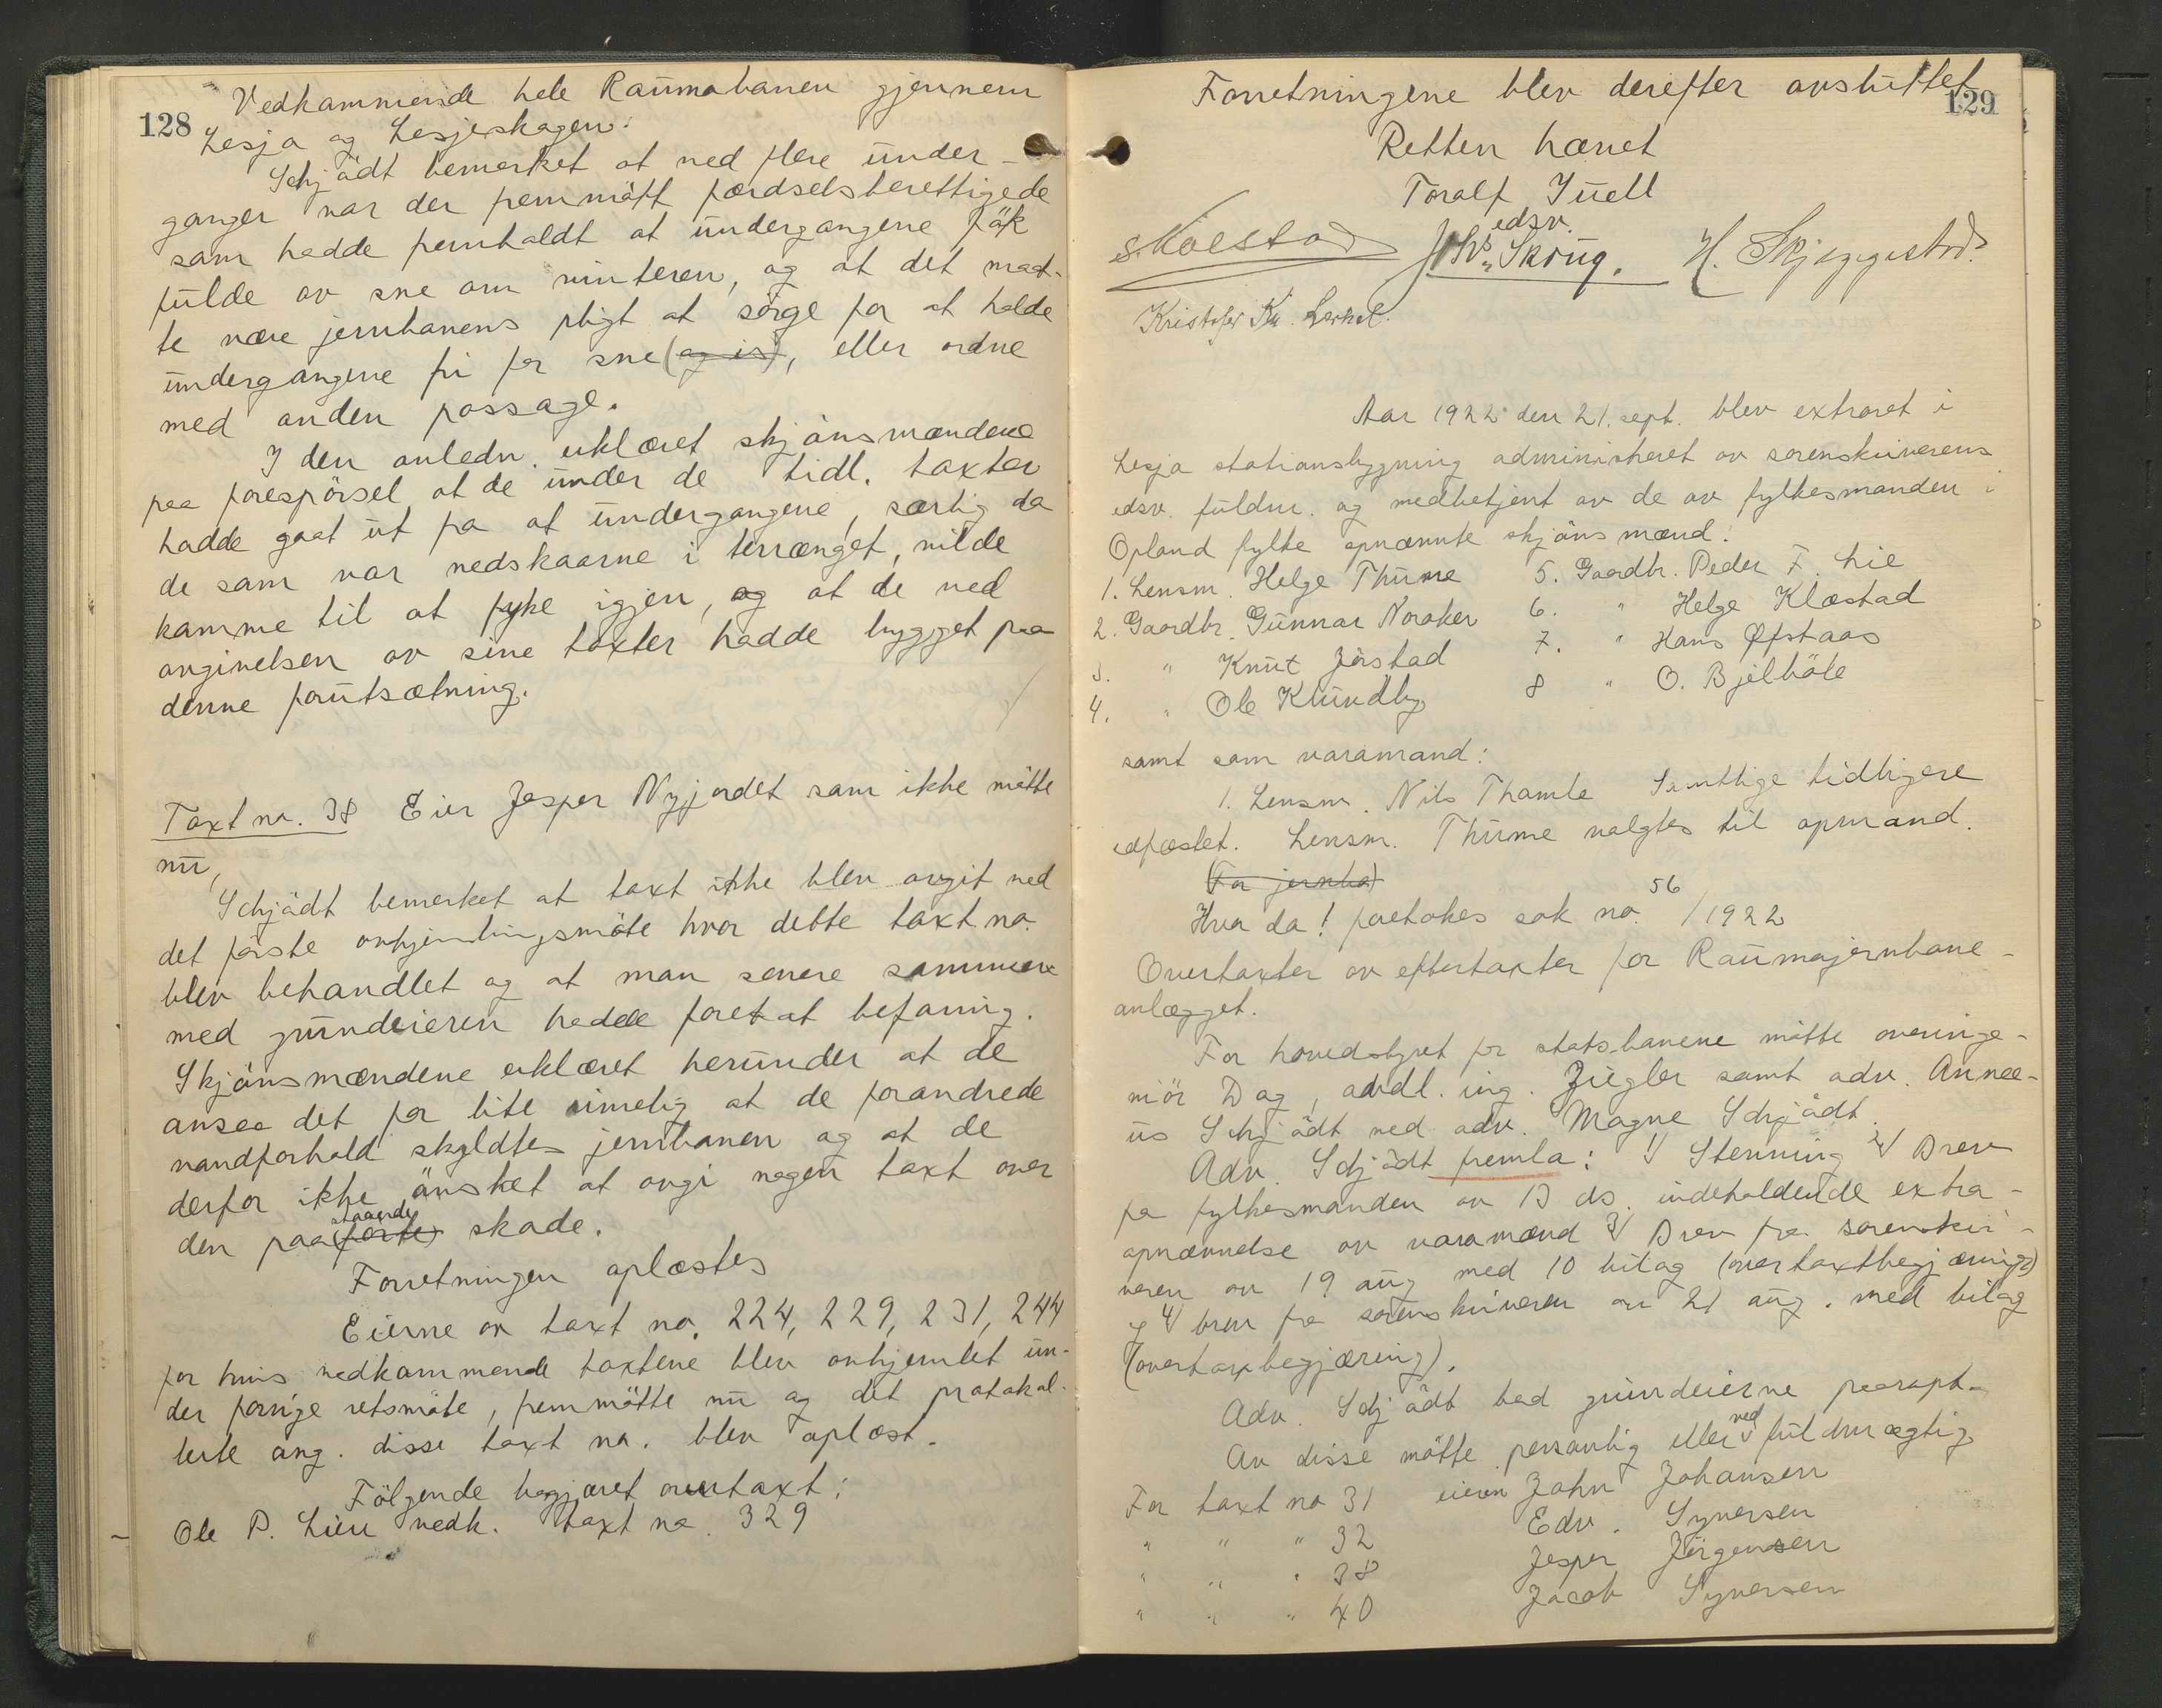 128
Vedkommende hele Raumabanen gjennem
Lesja og Lesjeskogen:
Schjödt bemerket at ved flere under-
ganger var der fremmött færdselsberettigede
som hadde fremholdt at undergangene fök
fulde av sne om vinteren, og at det maat-
te være jernbanens pligt at sörge for at holde
undergangene fri for sne (og is), eller ordne
med anden passage.
I den anledn. erklæret skjönsmændene
paa forespörsel at de under de tidl. taxter
hadde gaat ut fra at undergangene, særlig da
de som var nedskaarne i terrænget, vilde
komme til at fyke igjen, og at de ved
avgivelsen av sine taxter hadde bygget paa
denne forutsætning.
Taxt no. 38 Eier Jesper Nyjordet som ikke mötte
nu,
Schjödt bemerket at taxt ikke blev avgit ved
det förste avhjemlingsmöte hvor dette taxt no.
blev behandlet og at man senere sammen
med grundeieren hadde foretat befaring.
Skjönsmændene erklæret herunder at de
ansaa det for lite rimelig at de forandrede
vandforhold skyldtes jernbanen og at de
derfor ikke önsket at avgi nogen taxt over
staaende
den paa (förte) skade.
Forretningen oplæstes
Eierne av taxt no. 224, 229, 231, 244
for hvis vedkommende taxtene blev avhjemlet un-
der forrige retsmöte, fremmötte nu og det protokol-
lerte ang. disse taxt no. blev oplæst.
Fölgende begjæret overtaxt:
Ole P. Lien vedk. taxt no. 329
129
Forretningene blev derefter avsluttet
Retten hævet
Toralf Juell
edsv.
S. Kolstad Johs. Skrug. H. Skjeggestad
Kristofer Kr.
Aar 1922 den 21. sept. blev extraret i
Lesja stationsbygning administreret av sorenskriverens
edsv. fuldm. og medbetjent av de av fylkesmanden i
Opland fylke opnævnte skjönsmænd:
1. Lensm. Helge Thume 5. Gaardbr. Peder F. Lie
2. Gaardbr. Gunnar Noraker 6. " Helge Klæstad
3. " Knut Jörstad 7. " Hans Øfstaas
4. " Ole Klundby 8 " O. Bjelböle
samt som varamand:
1. Lensm. Nils Thamle Samtlige tidligere
edfæstet. Lensm. Thume valgtes til opmand.
(For jernba)
Hvor da! foretokes sak no. 56/1922
Overtaxter av eftertaxter for Raumajernbane-
anlægget.
For hovedstyret for statsbanene mötte overinge-
niör Dag, avdl. ing. Ziegler samt adv. Annæ-
us Schjödt ved adv. Magne Schjödt.
Adv. Schjödt fremla: 1/ Stevning 2/ Brev
fra fylkesmanden av 13 ds. indeholdende extra-
opnævnelse av varamænd 3/ Brev fra sorenskri-
veren av 19 aug med 10 bilag (overtaxtbegjæringer)
og 4/ brev fra sorenskriveren av 21 aug. med bilag
(overtaxbegjæring).
Adv. Schjödt bad grundeierne paaropt.
Av disse mötte personlig eller ved fuldmægtig
For taxt no 31 eieren John Johansen
" " " 32 Edv. Syversen
" " " 38 Jesper Jörgensen
" " " 40 Jacob Syversen